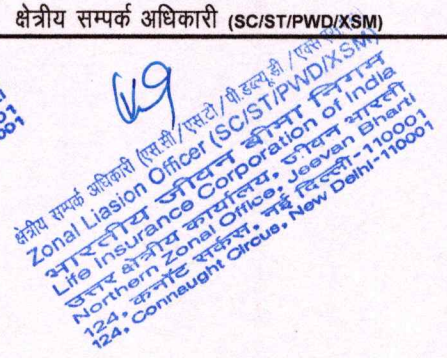 क्षेत्रीय सम्पर्क अधिकारी (SC/ST/PWD/XSM)
क्षेत्रीय सम्पर्क अधिकारी (एस.सी/एस.टी/पी.डब्ल्यू.डी/एक्स
Zonal Liasion Officer (SC/ST/PWD/XSM)
भारतीय जीवन बीमा निगम
Life Insurance Corporation of India
उत्तर क्षेत्रीय कार्यालय, जीवन भारती
Northern Zonal Office, Jeevan Bharti
124, कनॉट सर्कस, नई दिल्ली-110001
124, Connaught Circus, New Delhi-110001